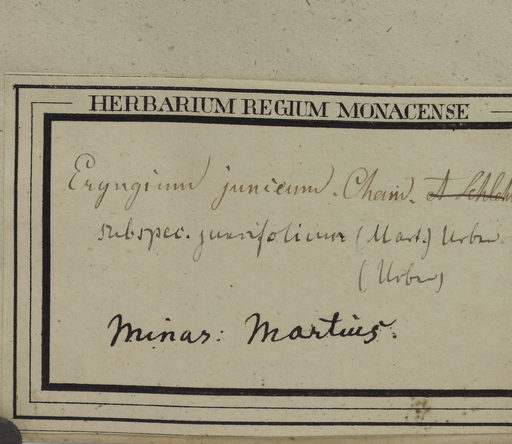 HERBARIUM REGIUM MONACENSE
Eryngium junceum. Cham. & Schlecht
subspec. juncifolium (Mart.) Urban
(Urban)
Minas: Martius.